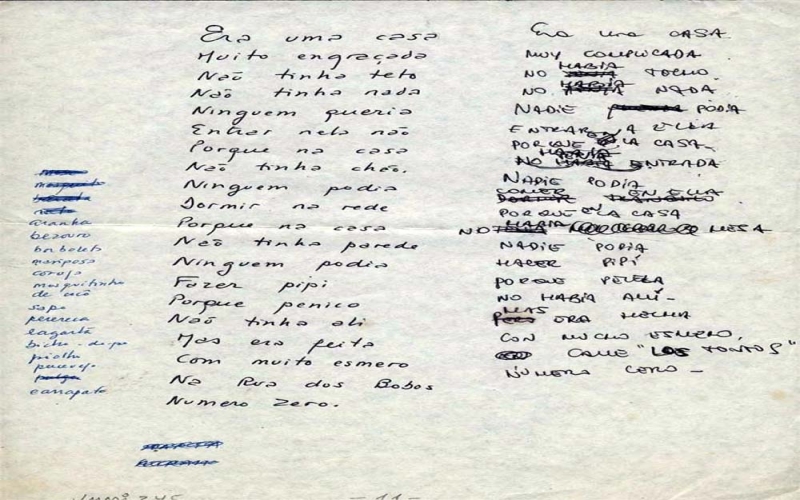 Era uma casa
Muito engraçada
Não tinha teto
Não tinha nada
Ninguem queria
Entrar nela não
Porque na casa
Não tinha chão.
Ninguem podia
Dormir na rede
Porque na casa
Não tinha parede
Ninguem podia
Fazer pipi
Porque penico
Não tinha ali
Mas era feita
Com muito esmero
Na Rua dos Bobos
Numero Zero.
Era una CASA
MUY COMPLICADA
NO HABIA TECHO.
NO HABIA NADA
NADIE PODIA
ENTRAR A ELLA
PORQUE LA CASA
NO TENIA ENTRADA
NADIE PODIA
COMER EN ELLA
PORQUE LA CASA
NO HABIA MESA
NADIE PODIA
HACER PIPÍ
PORQUE PELELA
NO HABIA ALLÍ-
MAS ERA HECHA
CON MUCHO ESMERO,
CALLE "LOS TONTOS"
NÚMERO CERO -
mosquito
aranha
besouro
borboleta
mariposa
coruja
mosquitinho
sapo
perereca
lagarta
piolho
percevejo
pulga
carrapato
- 11 -